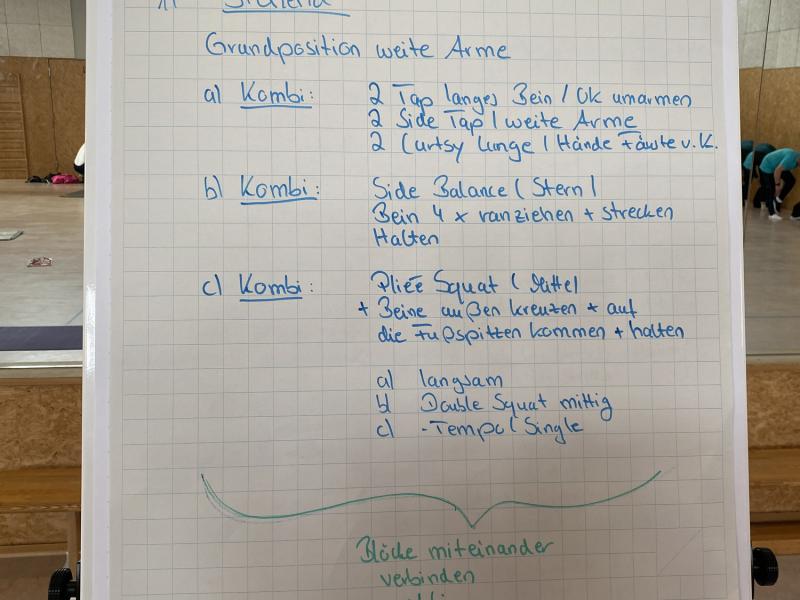 Grundposition weite Arme
a) Kombi: 2 Tap langes Bein / OK umarmen
2 Side Tap / weite Arme
2 Curtsy Lunge / Hände Fäuste v. K.
b) Kombi: Side Balance ( Stern )
Bein 4 x ranziehen + strecken
Halten
c) Kombi: Pliée Squat ( Mitte )
+ Beine außen kreuzen + auf
die Fußspitzen kommen + halten
a) langsam
b) Double Squat mittig
c) -Tempo ( Single
Blöcke miteinander
verbinden